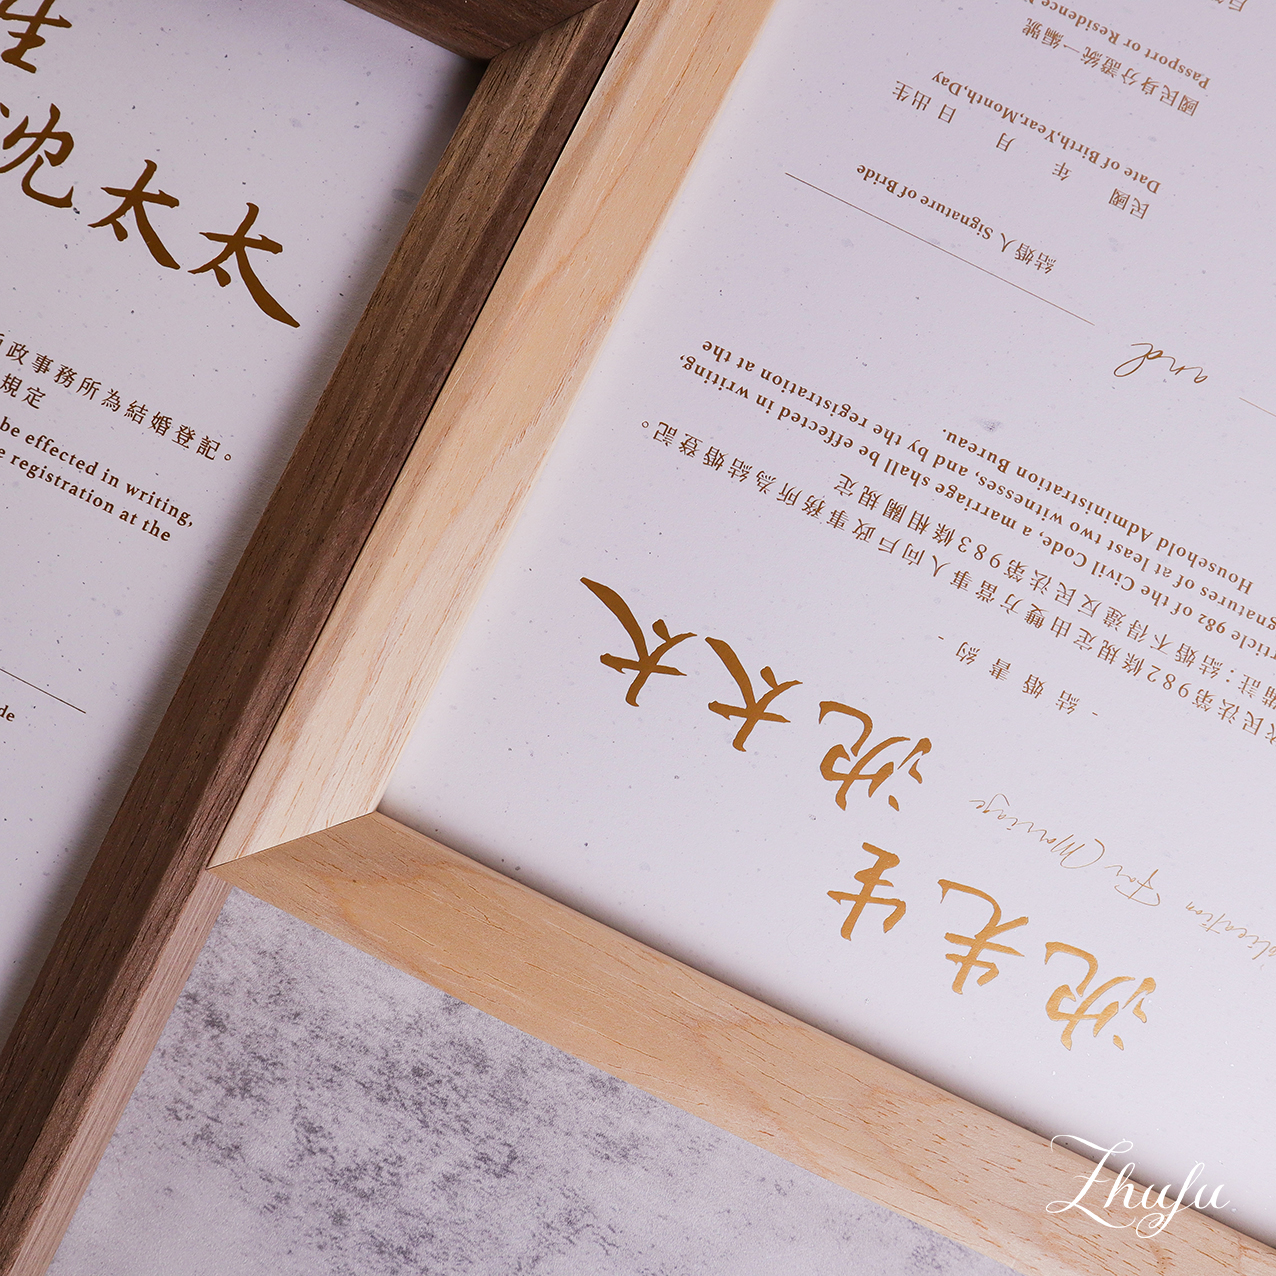 生
沈太太
政事務所為結婚登記。
規定
be effected in writing,
e registration at the
de
沈先生
Application For Marriage
沈太太
- 結婚書約 -
民法第982條規定由雙方當事人向戶政事務所為結婚登記。
備註：結婚不得違反民法第983條相關規定
Article 982 of the Civil Code, a marriage shall be effected in writing,
signatures of at least two witnesses, and by the registration at the
Household Administration Bureau.
and
結婚人 Signature of Bride
民國 年 月 日出生
Date of Birth,Year,Month,Day
國民身分證統一編號
Passport or Residence
Zhufu